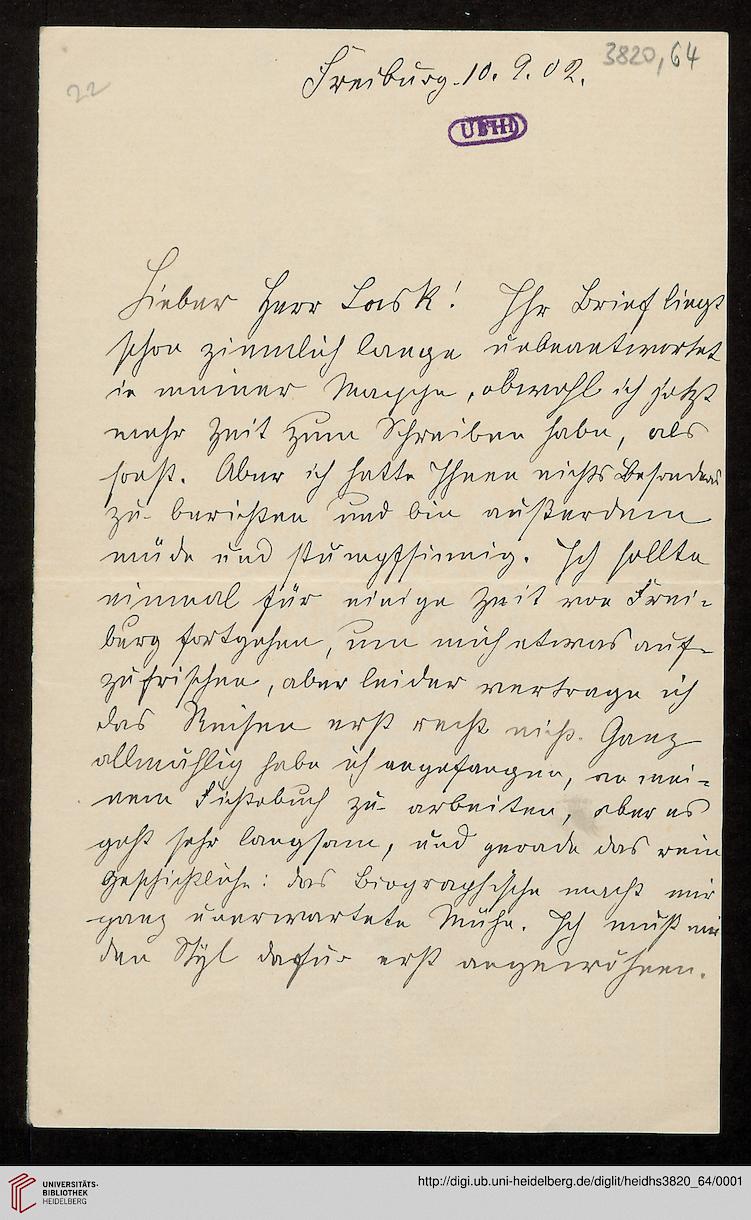 22
3820,64
Freiburg. 10. 9. 02.
UBHH
Lieber Herr Lask! Ihr Brief liegt
schon ziemlich lange unbeantwortet
in meiner Mappe, obwohl ich jetzt
mehr Zeit zum Schreiben habe, als
sonst. Aber ich hatte Ihnen nichts Besonderes
zu berichten und bin außerdem
müde und stumpfsinnig. Ich sollte
einmal für einige Zeit von Frei-
burg fortgehen, um mich etwas auf-
zufrischen, aber leider vertrage ich
das Reisen erst recht nicht. Ganz
allmählig habe ich angefangen, an mei-
nem Fichtebuch zu arbeiten, aber es
geht sehr langsam, und gerade das rein
Geschichtliche: das Biographische macht mir
ganz unerwartete Mühe. Ich muß mir
den Styl dafür erst angewöhnen.
UNIVERSITÄTS-
BIBLIOTHEK
HEIDELBERG
http://digi.ub.uni-heidelberg.de/diglit/heidhs3820_64/0001